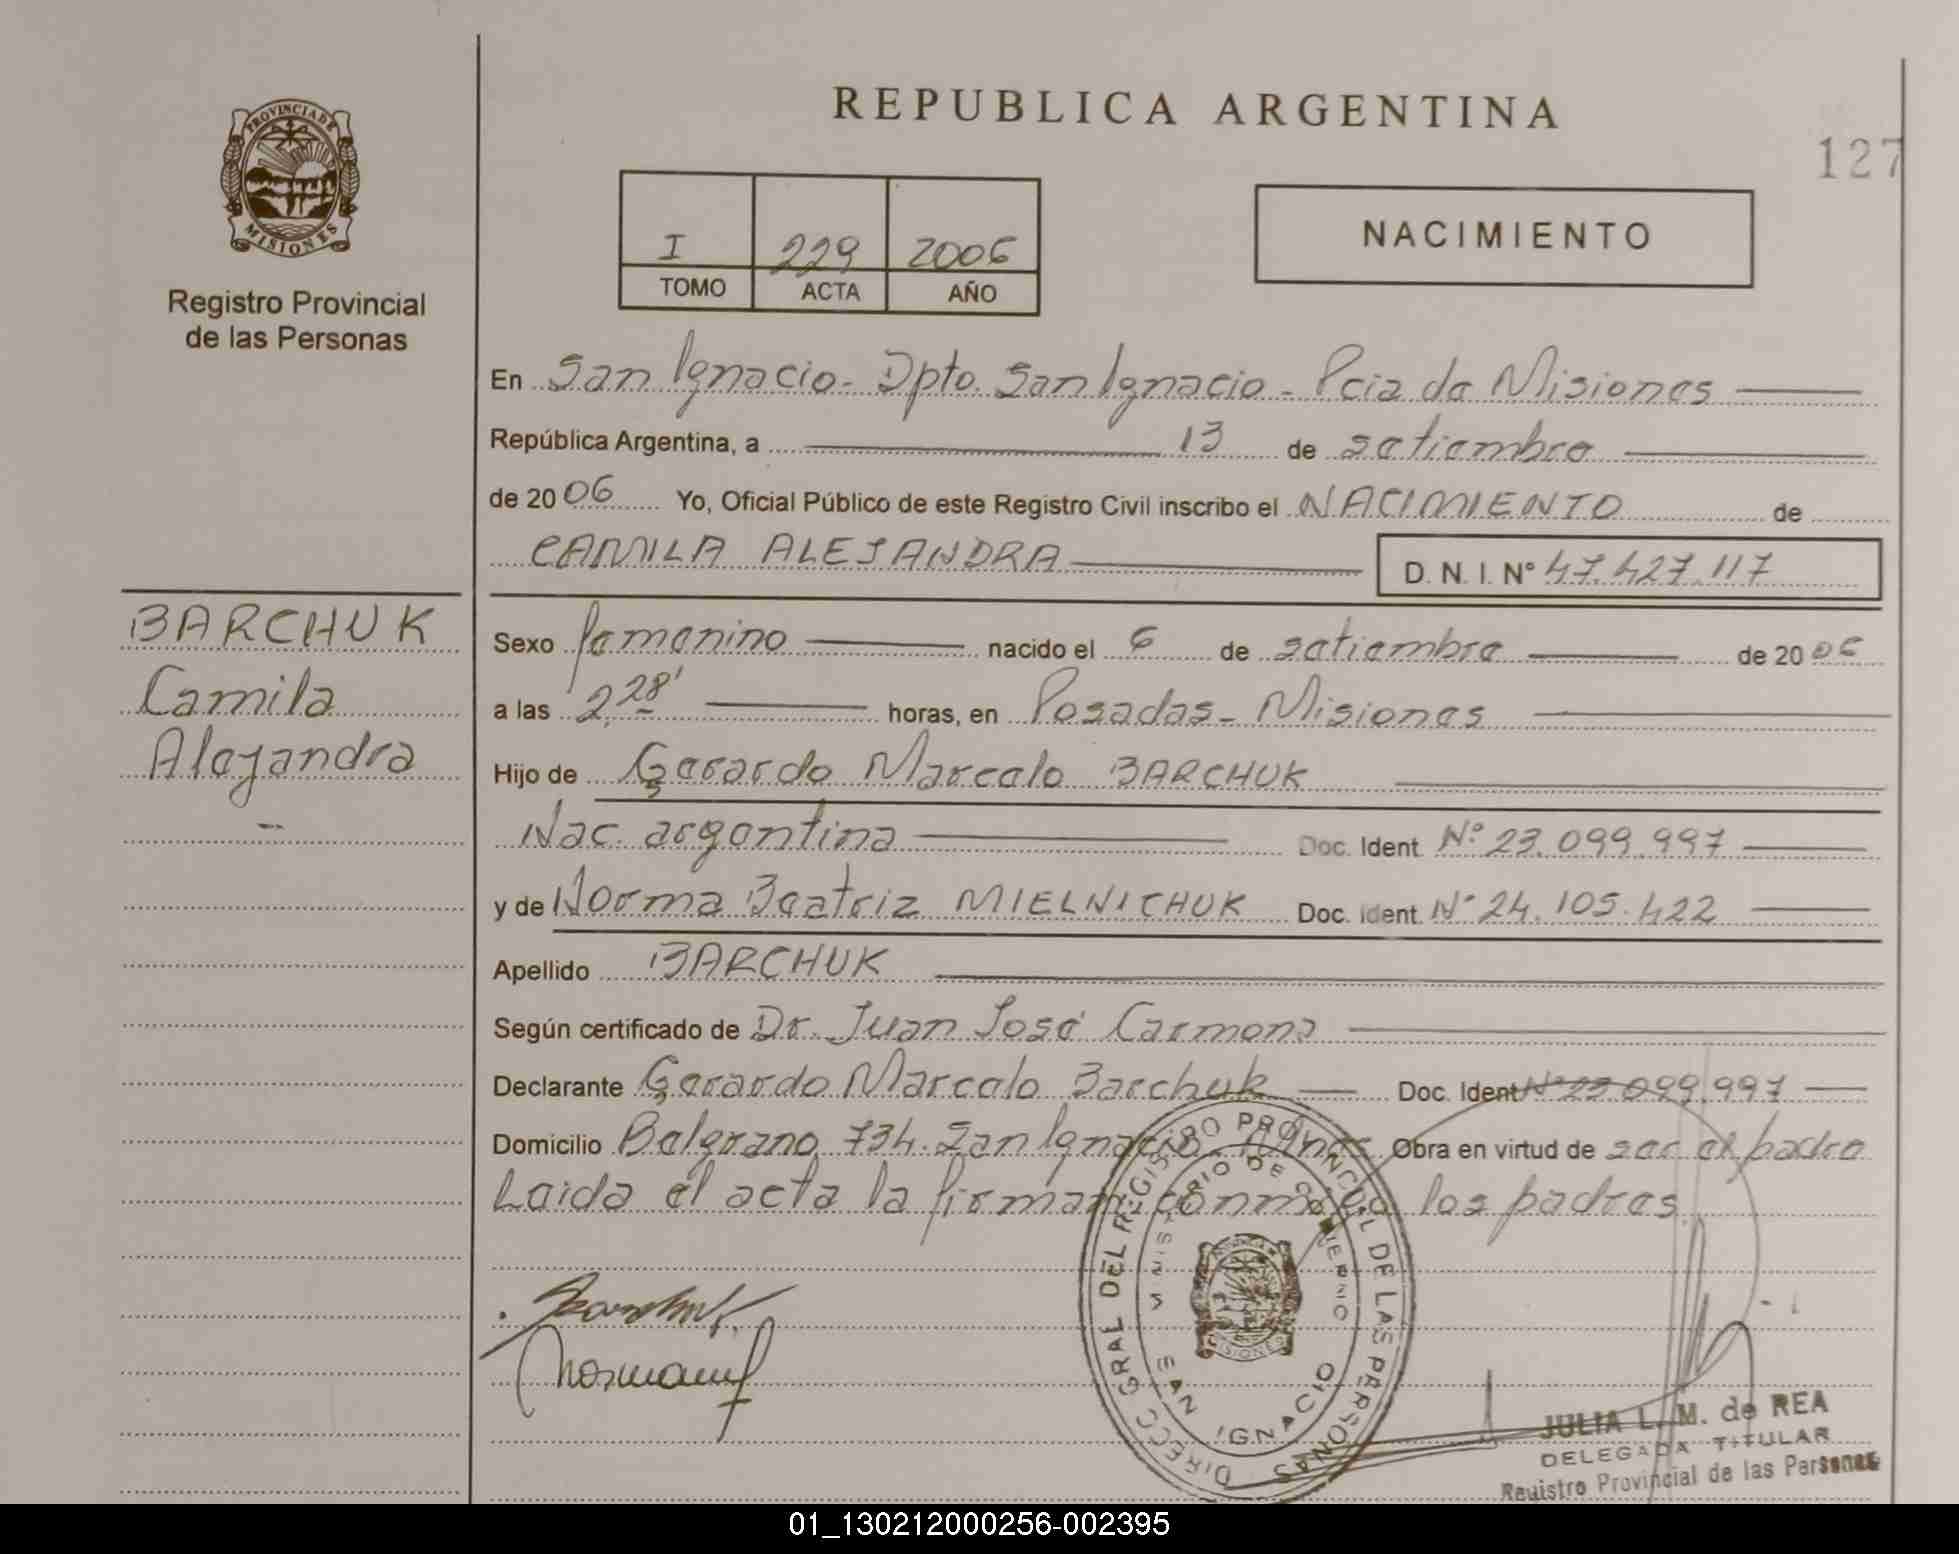 REPUBLICA ARGENTINA
127
PROVINCIA DE
MISIONES
Registro Provincial
de las Personas
I 229 2006
TOMO ACTA AÑO
NACIMIENTO
En San Ignacio - Dpto. San Ignacio - Pcia de Misiones
República Argentina, a 13 de setiembre
de 2006 Yo, Oficial Público de este Registro Civil inscribo el NACIMIENTO de
CAMILA ALEJANDRA D. N. I. Nº 47.427.117
BARCHUK
Camila
Alejandra
Sexo femenino nacido el 6 de setiembre de 2006
a las 2,28' horas, en Posadas - Misiones
Hijo de Gerardo Marcelo BARCHUK
Nac. argentina Doc. Ident. Nº 23.099.997
y de Norma Beatriz MIELNICHUK Doc. Ident. Nº 24.105.422
Apellido BARCHUK
Según certificado de Dr. Juan José Carmona
Declarante Gerardo Marcelo Barchuk Doc. Ident Nº 23.099.997
Domicilio Belgrano 734. San Ignacio Obra en virtud de ser el padre
Leida el acta la firman conmigo los padres.
DIRECC GRAL DEL REGISTRO PROVINCIAL DE LAS PERSONAS
MINISTERIO DE GOBIERNO
SAN IGNACIO
MISIONES
JULIA L. M. de REA
DELEGADA TITULAR
Registro Provincial de las Personas
01_130212000256-002395